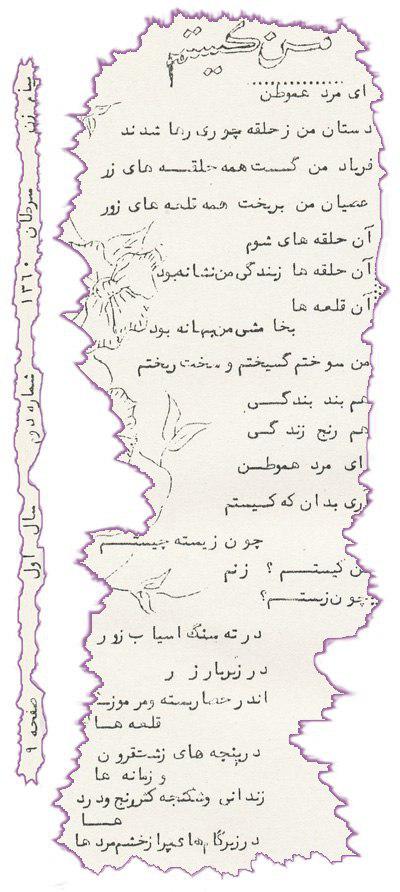 من کیستم
ای مرد هموطن
دستان من ز حلقه چو ری رها شدند
فریاد من گسست همه حلقه های زر
عصیان من بریخت همه قلعه های زور
آن حلقه های شوم
آن حلقه ها ز بندگی من نشانه بود
آن قلعه ها
بخا مشی من بهانه بود
من سوختم گسیختم و سخت ریختم
هم بند بندگی
هم رنج زندگی
ای مرد هموطن
آری بدان که کیستم
چون زیسته چیستم
من کیستم ؟ زنم
چون زیستم؟
در ته سنگ اسیاب زور
در زیر بار زر
اندر حصار بسته و مرموز
قلعه ها
در پنجه های زشت قرون
و زمانه ها
زندانی و شکنجه کش رنج و درد
ها
در زیر گام های پر از خشم مرد ها
پیام زن سرطان ۱۳۶۰ شماره دوم سال اول صفحه ۹